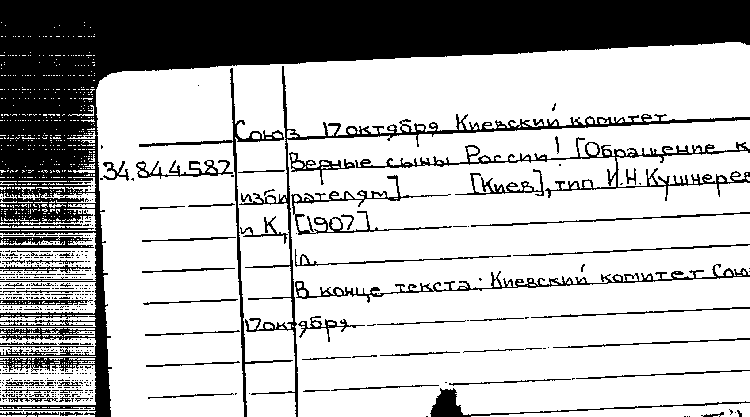 Союз 17 октября Киевский комитет.
34.84.4.582 Верные сыны России! [Обращение к
избирателям]. [Киев], тип И.Н.Кушнерев
и К, [1907].
1л.
В конце текста: Киевский комитет Союз
17 октября.